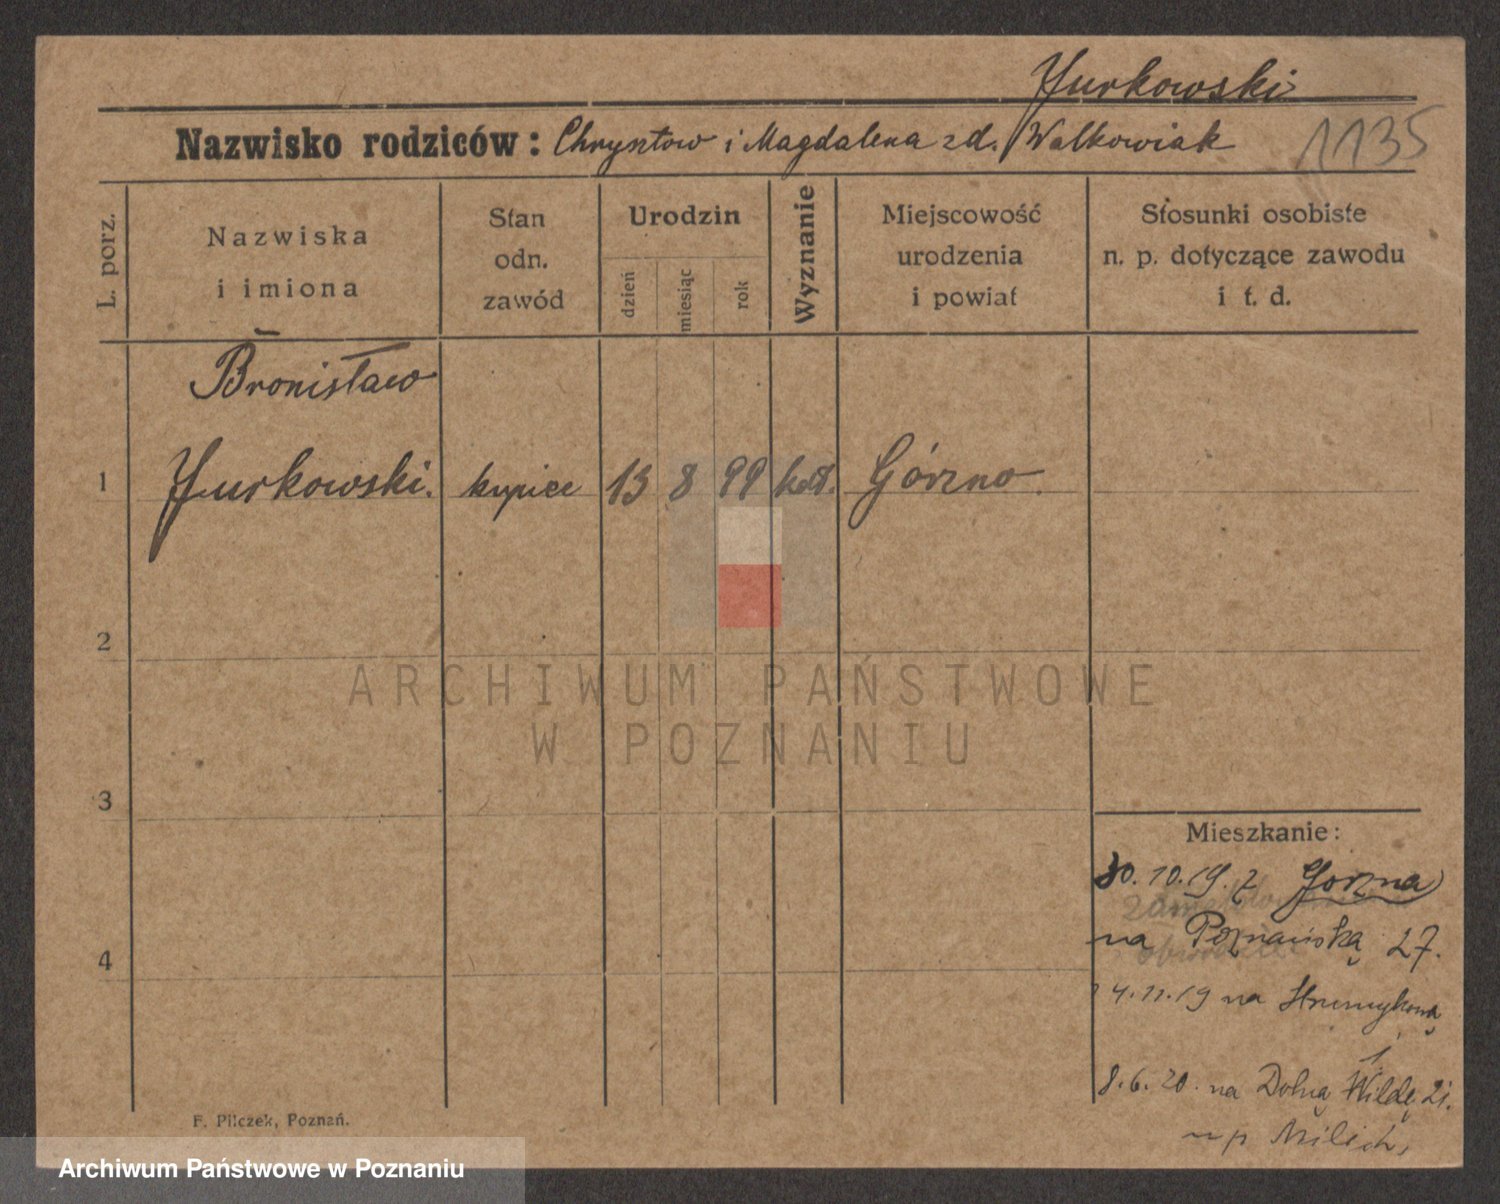 Jurkowski
Nazwisko rodziców: Chrysztow i Magdalena zd. Walkowiak 1135
L. porz.
Nazwiska
i imiona
Stan
odn.
zawód
Urodzin
dzień
miesiąc
rok
Wyznanie
Miejscowość
urodzenia
i powiat
Stosunki osobiste
n. p. dotyczące zawodu
i t. d.
Bronisław
1 Jurkowski. kupiec 13 8 99 kat. Górzno.
2
ARCHIWUM PAŃSTWOWE
W POZNANIU
3
Mieszkanie:
30.10.19. z Gorzna
na Poznańską 27.
4
4.11.19 na
1,
8.6.20. na Dolną Wildę 21.
Milich,
F. Pilczek, Poznań.
Archiwum Państwowe w Poznaniu